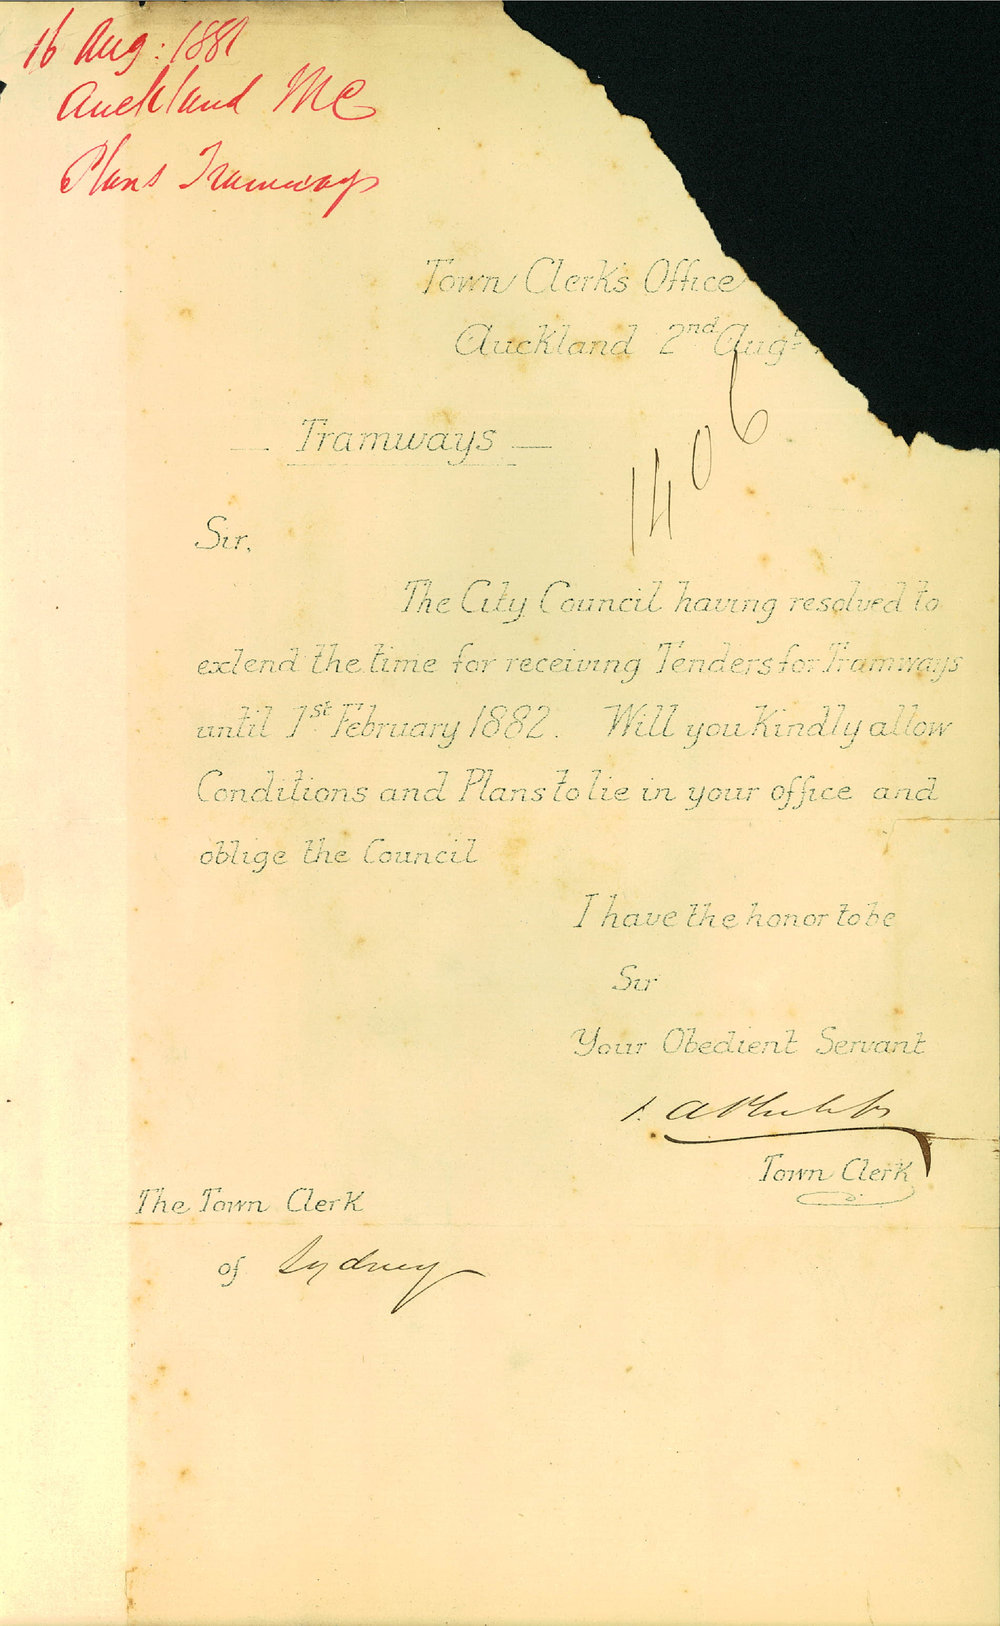 16 Aug: 1881
Auckland MC
Plans Tramways
Town Clerk's Office
Auckland 2nd Augt
1406
Tramways
Sir,
The City Council having resolved to
extend the time for receiving Tenders for Tramways
until 1st February 1882. Will you Kindly allow
Conditions and Plans to lie in your office and
oblige the Council
I have the honor to be
Sir
Your Obedient Servant
Town Clerk
The Town Clerk
of Sydney